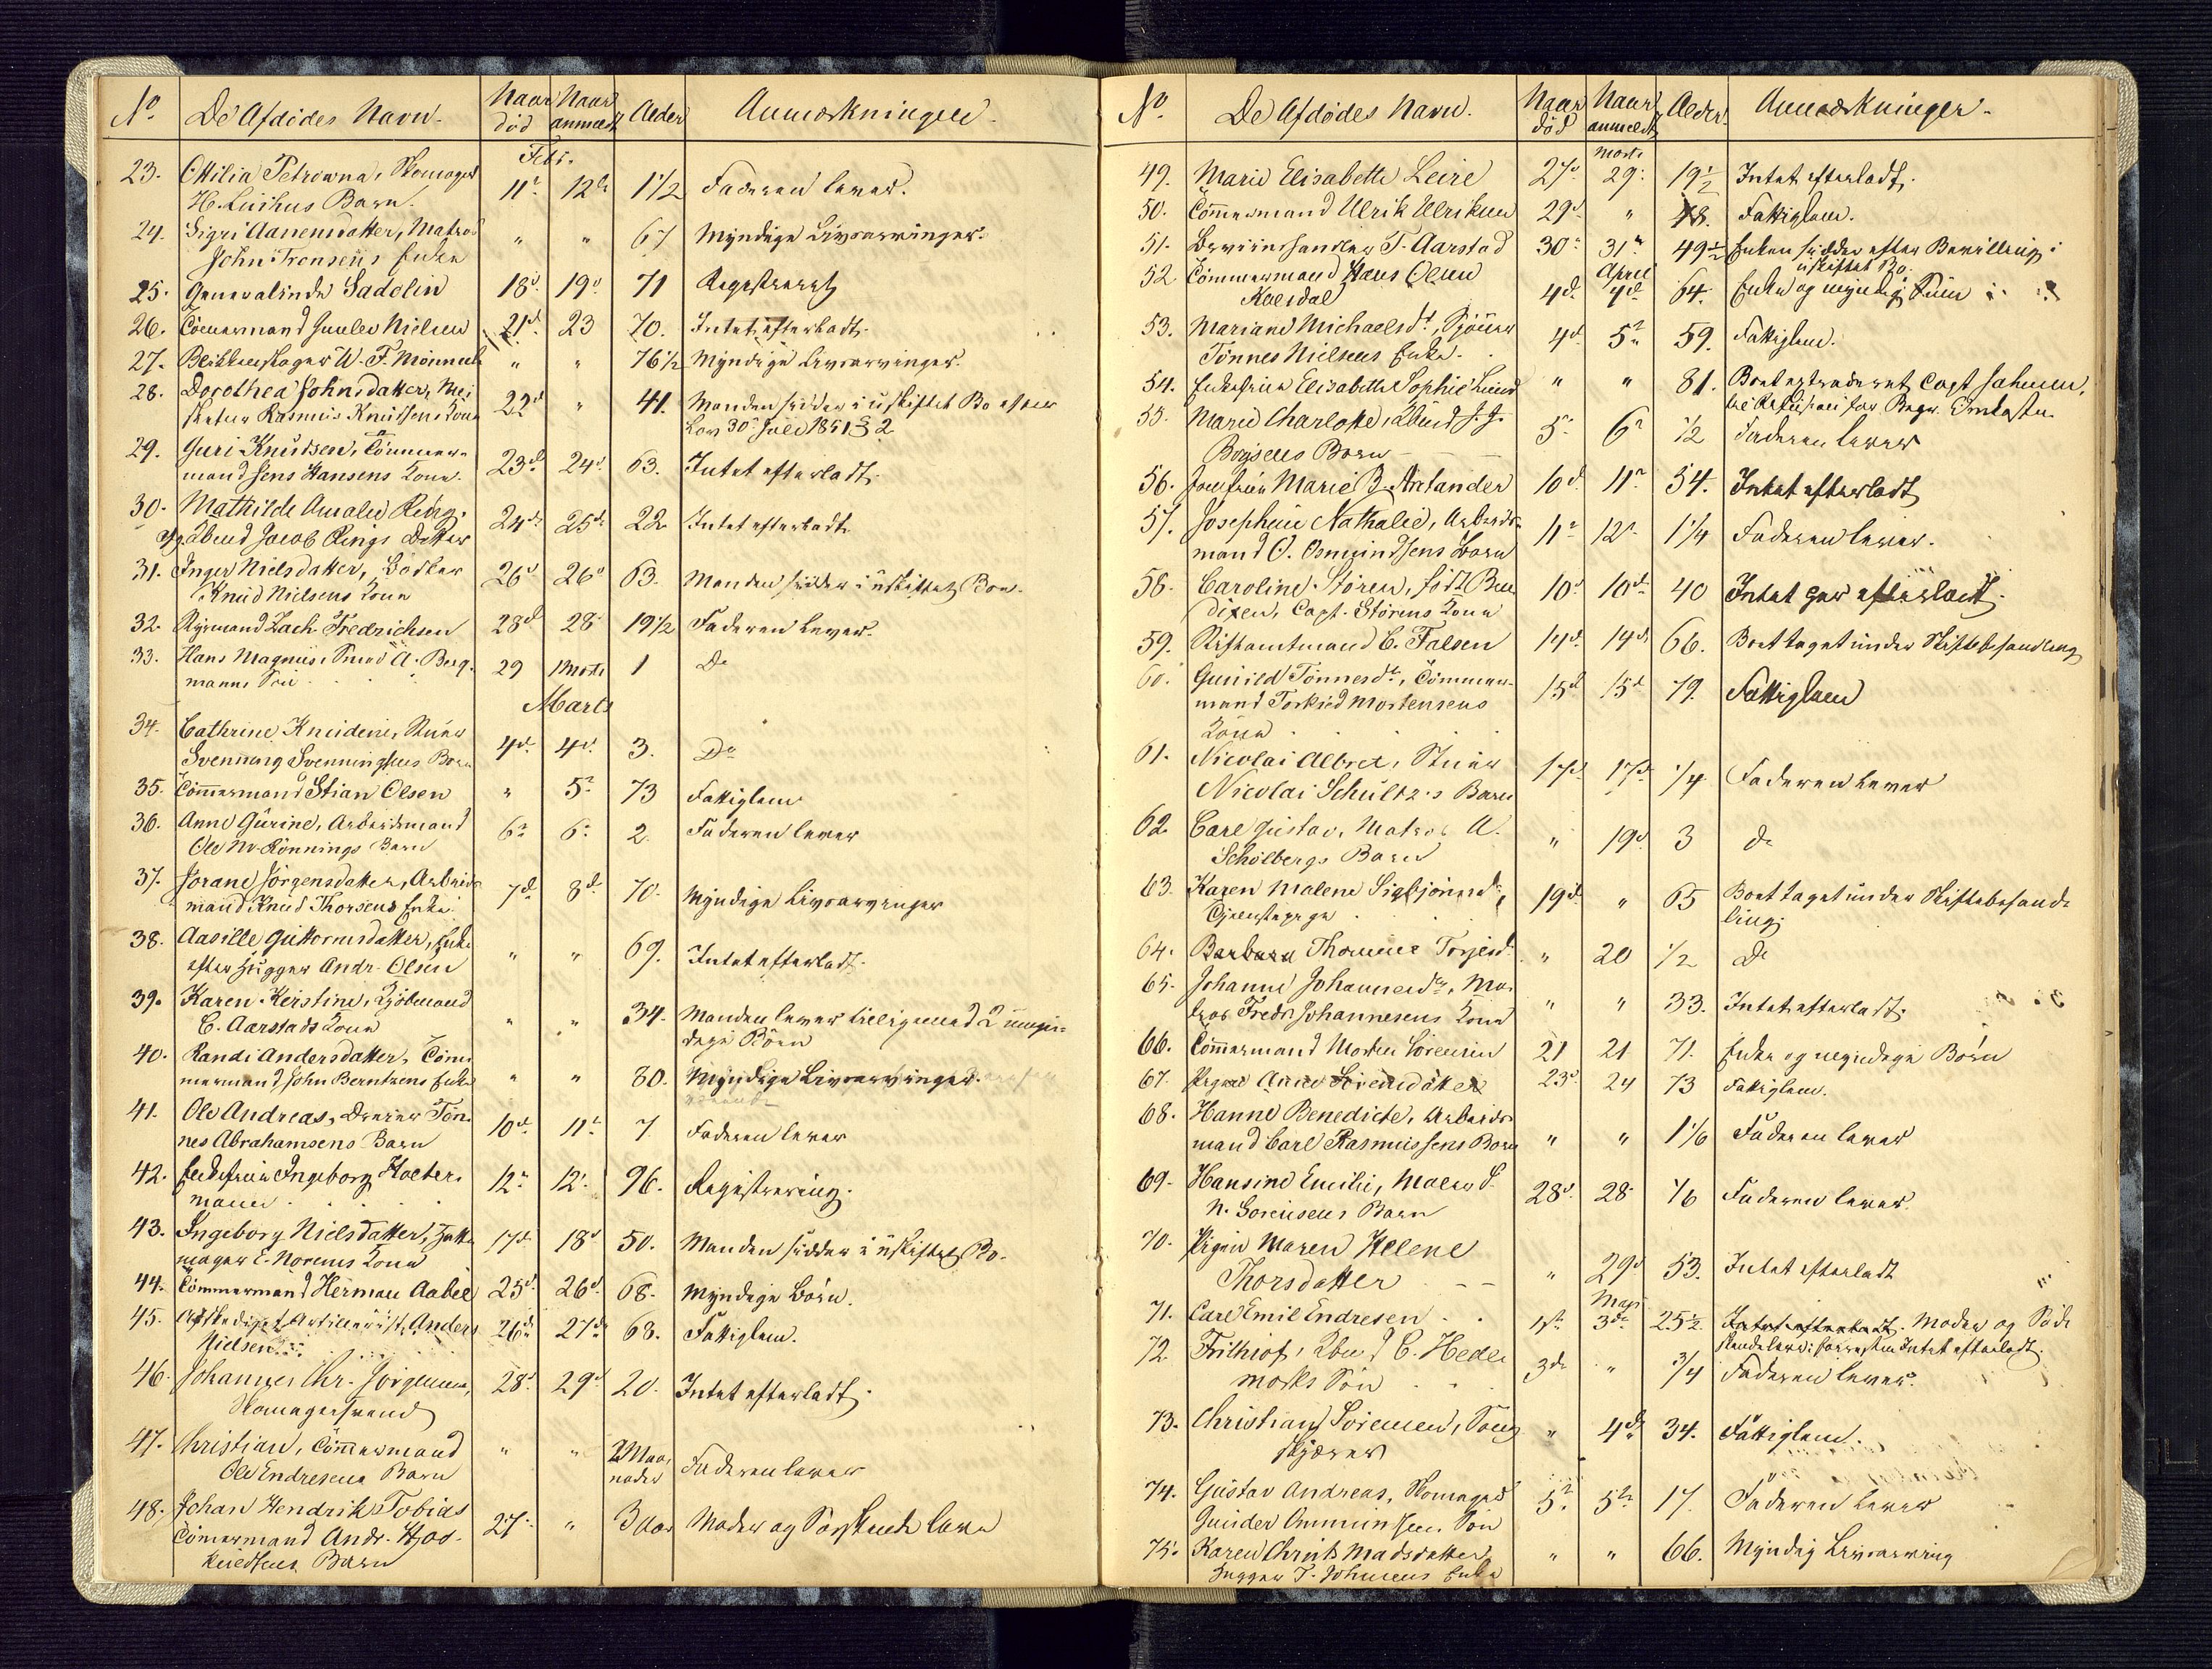 No De Afdödes Navn. Naar död Naar anmeldt Alder Anmærkninger.
Febr.
23. Ottilia Petrowna, Skomager
H. Luihus Barn. 11te 12te 1 1/2 Faderen lever.
24. Sigri Aanensdatter, Matros
John Tronsens Enke " " 67 Myndige Livsarvinger.
25. Generalinde Sadolin 18de 19de 71
26. Tömmermand Gunder Nielsen 21de 23 70. Intet efterladt.
27. Blikkenslager W. F. " " 76 1/2 Myndige Livsarvinger.
28. Dorothea Johnsdatter,
Rasmus Knudsens Kone 22de " 41. Manden sidder i uskiftet Bo efter
Lov 30 Juli 1851 § 2
29. Guri Knudsen, Tömmer-
mand Jens Hansens Kone. 23de 24de 63. Intet efterladt.
30. Mathilde Amalie Ring,
Jacob Rings Datter 24de 25de 22 Intet efterladt
31. Inger Nielsdatter, Bödker
Knud Nielsens Kone 26de 26de 63. Manden sidder i uskiftet Boe.
32. Zach. Fredrichsen 28de 28 19 1/2 Faderen lever.
33. Hans Magnus, Smed A. Berg-
manns Sön 29 Marts 1 Do
Marts
34. Cathrine Knudine,
Svenning Svenningsens Barn 4de 4de 3. Do
35. Tömmermand Stian Olsen " 5te 73 Fattiglem
36. Anne Gurine, Arbeidsmand
Ole Rönnings Barn 6te 6te 2 Faderen lever
37. Jorane Jörgensdatter, Arbeids
mand Knud Thorsens Enke 7de 8de 70. Myndige Livsarvinger
38. Aasille Guttormsdatter, Enke
efter Andr. Olsen " " 69. Intet efterladt.
39. Karen Kerstine, Kjöbmand
C. Aarstads Kone " " 34. Manden lever tilligemed 2 umyn-
dige Börn
40. Randi Andersdatter, Töm-
mermand John Berntzens Enke " " 80. Myndige Livsarvinger.
41. Ole Andreas, Dreier Tön-
nes Abrahamsens Barn 10de 11te 7 Faderen lever
42. Enkefrue Ingeborg Holter-
mann 12te 12te 96. Registrering.
43. Ingeborg Nielsdatter,
mager E. Norems Kone 17de 18de 50. Manden sidder i uskiftet Bo.
44. Tömmermand Herman Aabel 25de 26de 68. Myndige Börn.
45. Afskediget Artillerist Anders
Nielsen 26de 27de 68. Fattiglem.
46. Johannes Chr. Jörgensen,
Skomagersvend 28de 29de 20. Intet efterladt.
47. Christian, Tömmermand
Ole Endresens Barn " " 2 Maa-
neder Faderen lever
48. Johan Hendrik Tobias
Tömmermand Andr.
Knudsens Barn 27 " 3 Aar Moder og Söskende lever
No De Afdödes Navn. Naar död Naar anmeldt Alder Anmærkninger.
Marts
49. Marie Elisabeth Leire 27de 29. 19 1/2 Intet efterladt.
50. Tömmermand Ulrik Ulriksen 29de " 48. Fattiglem.
51. T. Aarstad 30te 31te 49 1/2 Enken sidder efter Bevilling i
uskiftet Bo.
April
52. Tömmermand Hans Olsen
4de 4de 64. Enke og myndig Sön
53. Mariane Michaelsdt,
Tönnes Nielsens Enke. 4de 5te 59. Fattiglem.
54. Enkefrue Elisabeth Sophie Lund " " 81. Boet extraderet Capt
55. Marie Charlotte,
Boysens Barn 5te 6te 1/2 Faderen lever
56. Jomfrue Marie B. Arctander 10de 11te 54. Intet efterladt
57. Josephine Nathalie, Arbeids-
mand O. Osmundsens Barn 11te 12te 1 1/4 Faderen lever.
58. Caroline Stören, född Ben-
dixen, Capt. Störens Kone 10de 10de 40 Intet efterladt.
59. Stiftamtmand C. Falsen 14de 14de 66. Boet taget under Skiftebehandling
60. Gunild Tönnesdt, Tömmer-
mand Torkild Mortensens
Kone 15de 15de 79. Fattiglem
61. Nicolai Albret,
Nicolai Schultz's Barn 17de 17de 1/4 Faderen lever
62. Carl Gustav, Matros A.
Schölbergs Barn " 19de 3 do
63. Karen Malene Sigbjörnsd,
Tjenestepige 19de " 65 Boet taget under Skiftebehand-
ling.
64. Barbara Thomine Torjesd. " 20 1/2 Do
65. Johanne Johannesdr, Ma-
tros Fredr. Johannesens Kone " " 33. Intet efterladt.
66. Tömmermand Morten Sörensen 21 21 71. Enke og myndige Börn
67. Pigen Anne Sörensdatter 23de 24 73 Fattiglem.
68. Hanne Benedicte, Arbeids
mand Carl Rasmussens Barn " " 1 1/6 Faderen lever
69. Hansine Emilie, Maler S.
N. Sörensens Barn 28de 28 1/6 Faderen lever.
70. Pigen Maren Helene
Thorsdatter " 29de 53. Intet efterladt
Mai
71. Carl Emil Endresen 1ste 3de 25 1/2. Intet efterladt. Moder og Sö-
skende lever; forresten Intet efterladt.
72. Frithiof, C. Hede-
marks Sön 3de " 3/4 Faderen lever.
73. Christian Sörensen,
" 4de 34. Fattiglem.
74. Gustav Andreas, Skomager
Gunder Ommundsens Sön 5te 5te 17. Faderen lever
75. Karen Christ. Madsdatter,
T. Johnsens Enke " " 66. Myndig Livsarving